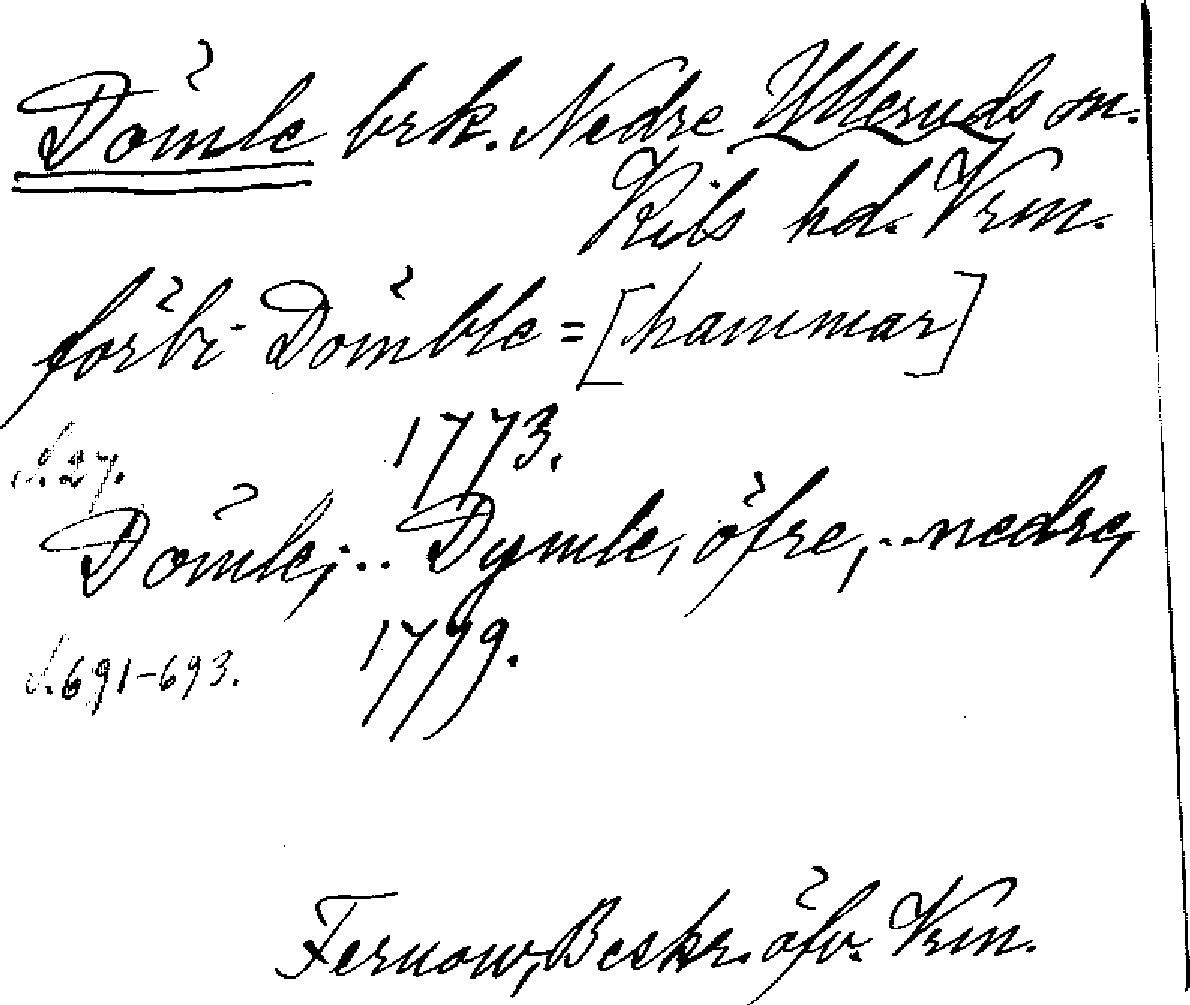 Dömle brk. Nedre Ulleruds sn.
Kils hd. Vrm.
förbi Dömble=[hammar]
1773.
S. 27.
Dömle,.. Dymle, öfre,..nedre,
1779.
S. 691-693.
Fernow, Beskr. öfv. Vrm.